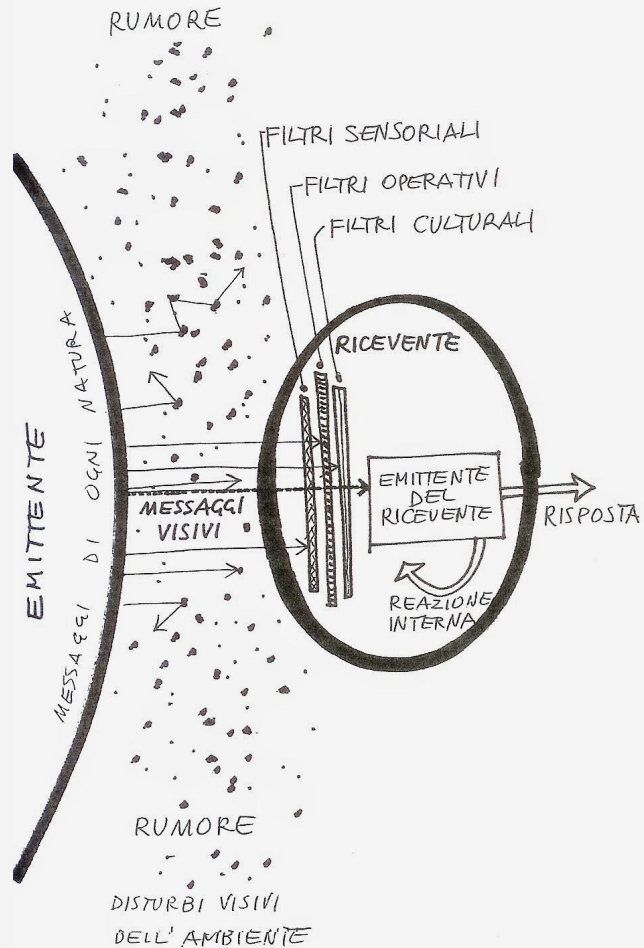 RUMORE
FILTRI SENSORIALI
FILTRI OPERATIVI
FILTRI CULTURALI
RICEVENTE
EMITTENTE
MESSAGGI DI OGNI NATURA
MESSAGGI
VISIVI
EMITTENTE
DEL
RICEVENTE
RISPOSTA
REAZIONE
INTERNA
RUMORE
DISTURBI VISIVI
DELL'AMBIENTE